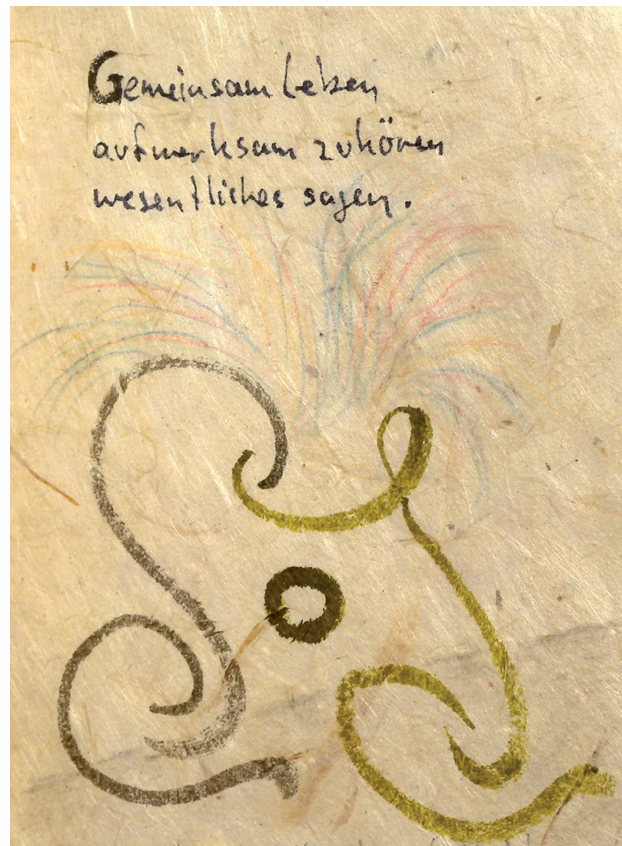 Gemeinsam leben
aufmerksam zuhören
wesentliches sagen.